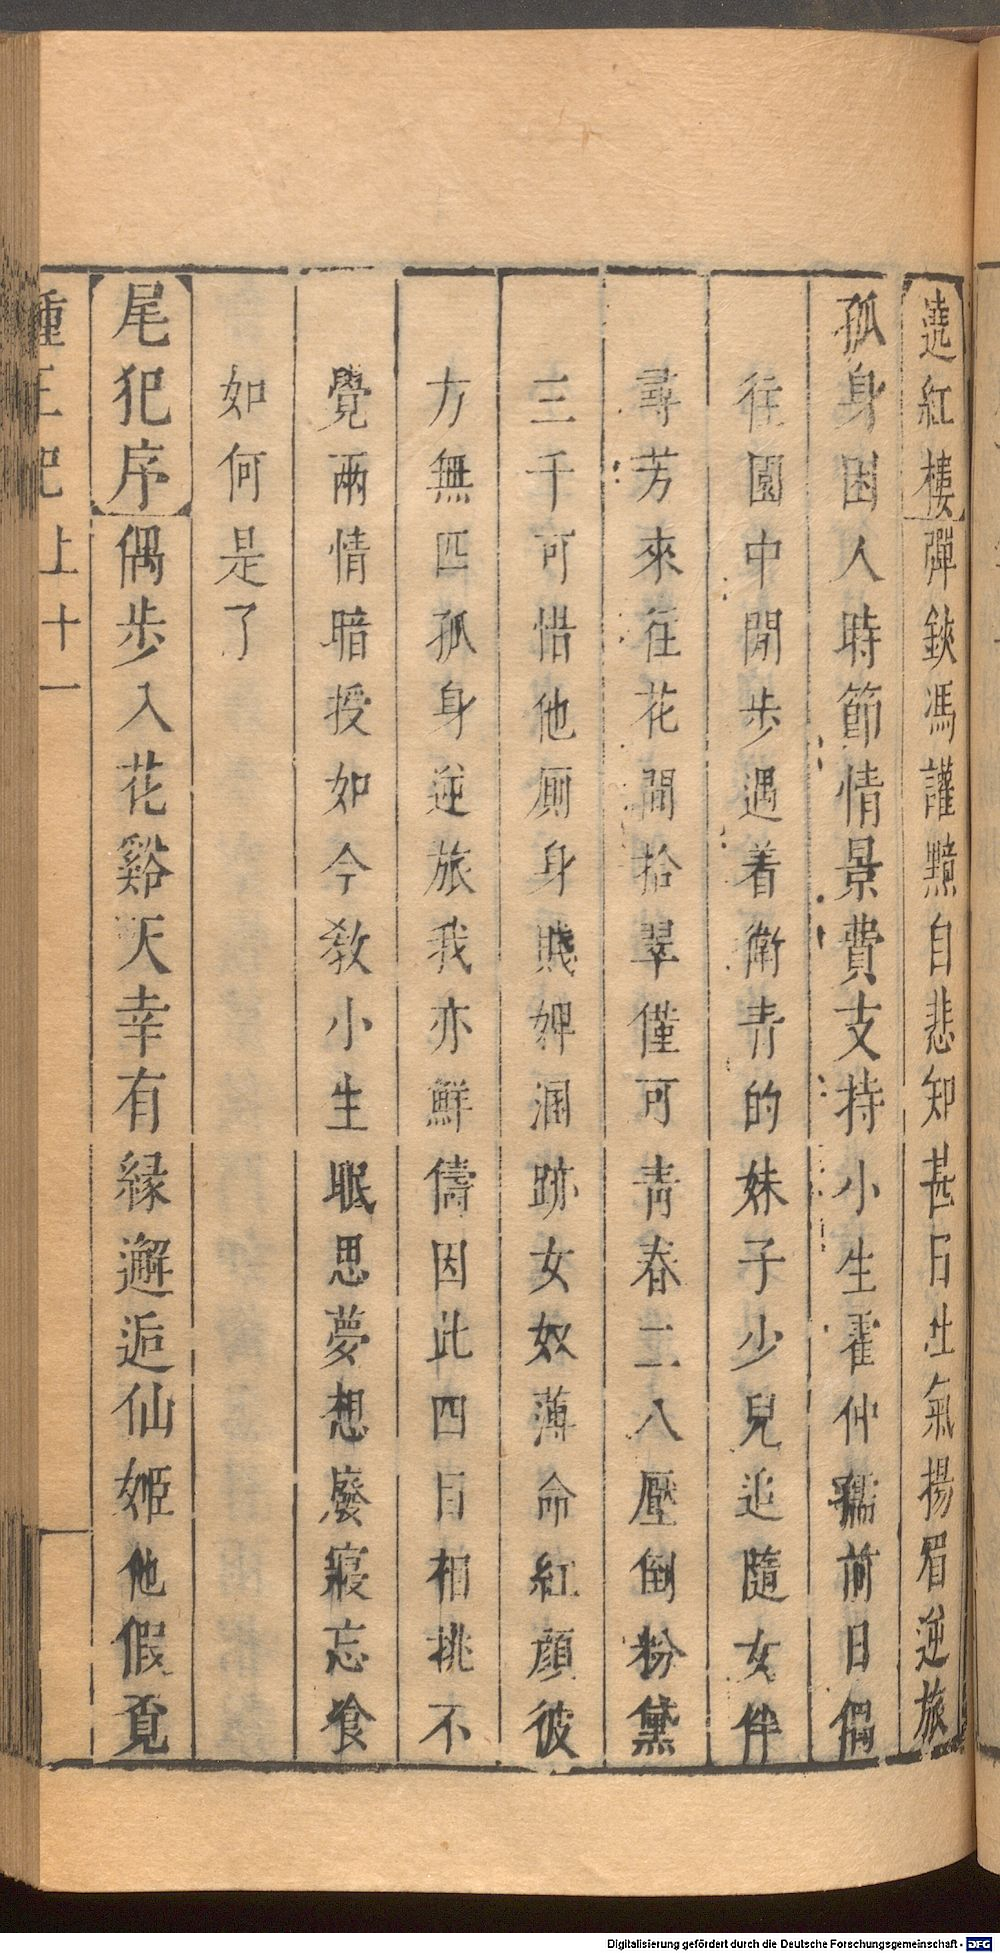 遶紅樓彈鋏馮讙黯自悲知甚日吐氣揚眉逆旅
孤身困人時節情景費支持小生霍仲孺前日偶
往園中閒步遇着衛青的妹子少兒追隨女伴
尋芳來往花間拾翠僅可青春二八壓倒粉黛
三千可惜他厠身賤婢溷跡女奴薄命紅顏彼
方無匹孤身逆旅我亦鮮儔因此四目相挑不
覺兩情暗授如今教小生眠思夢想廢寢忘飡
如何是了
尾犯序偶步入花谿天幸有緣邂逅仙姬他假覓
上十一
Digitalisierung gefördert durch die Deutsche Forschungsgemeinschaft - DFG